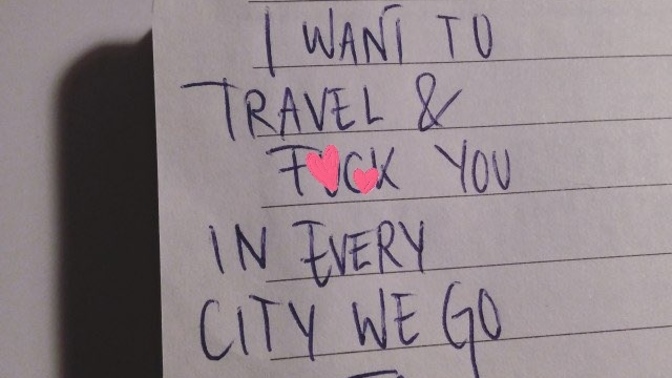 I WANT TO
TRAVEL &
FUCK YOU
IN EVERY
CITY WE GO